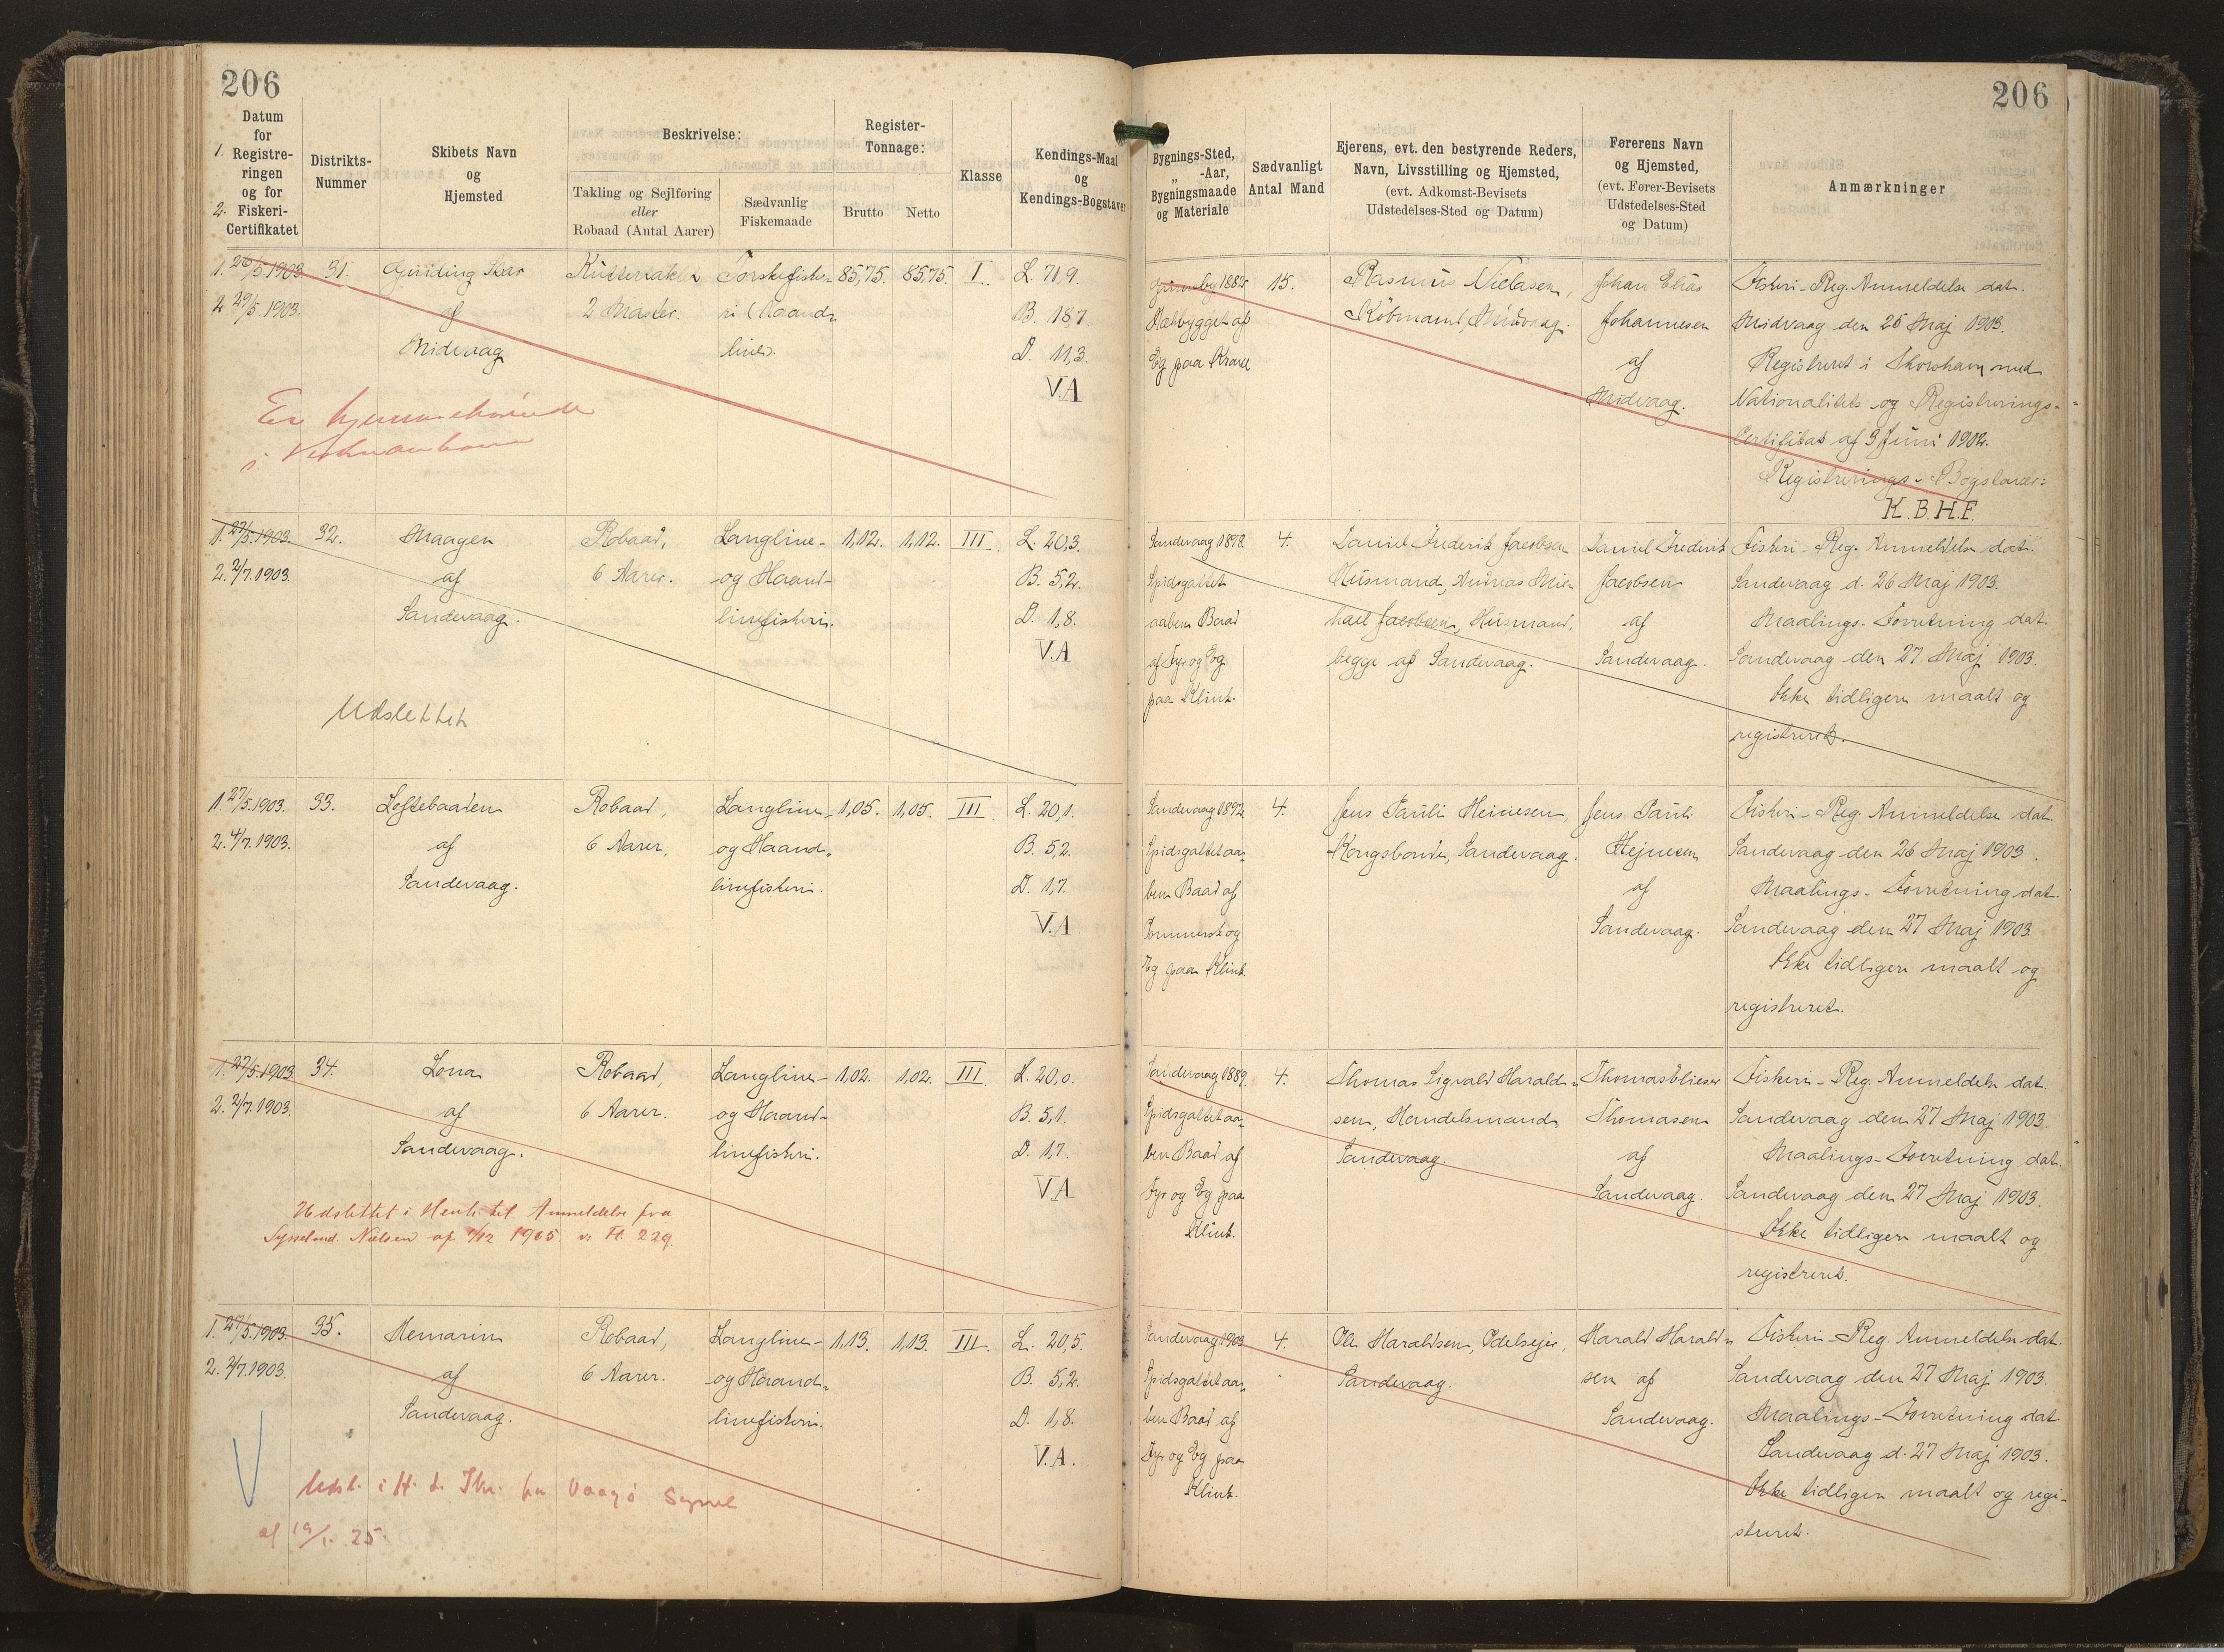 206
206
1.
2.
Datum
for
Registre-
ringen
og for
Fiskeri-
Certifikatet
Distrikts-
Nummer
Skibets Navn
og
Hjemsted
Beskrivelse:
Takling og Sejlføring
eller
Robaad (Antal Aarer)
Sædvanlig
Fiskemaade
Register-
Tonnage:
Brutto
Netto
Klasse
Kendings-Maal
og
Kendings-Bogstaver
Bygnings-Sted,
„ -Aar,
Bygningsmaade
og Materiale
Sædvanligt
Antal Mand
Ejerens, evt. den bestyrende Reders,
Navn, Livsstilling og Hjemsted,
(evt. Adkomst-Bevisets
Udstedelses-Sted og Datum)
Førerens Navn
og Hjemsted,
(evt. Fører-Bevisets
Udstedelses-Sted
og Datum)
Anmærkninger
1. 26/5 1903.
2. 29/5. 1903.
31.
Guiding Star
af
Midvaag
Kuttertakler
2 Master.
Torskefiske-
ri (Haand-
line).
85,75.
85,75.
I.
L. 71,9.
B. 18,7.
D. 11,3.
V.A
Grimsby 1882
Klætbygget af
Eg paa Kravel
15.
Rasmus Nielsen,
Købmand, Midvaag.
Johan Elias
Johannesen
af
Midvaag.
Fiskeri-Reg. Anmeldelse dat.
Midvaag den 25 Maj 1903.
Registreret i Thorshavn med
Nationalitets- og Registrerings-
Certifikat af 3 Juni 1902.
Registrerings-Bogstaver:
K.B.H.F.
Er hjemmehørende
i Vestmanhavn
1. 27/5. 1903.
2. 2/7. 1903.
32.
Maagen
af
Sandevaag.
Robaad,
6 Aarer.
Langline-
og Haand-
linefiskeri.
1,12.
1,12.
III.
L. 20,3.
B. 5,2.
D. 1,8.
V.A
Sandevaag 1898
Spidsgattet
aaben Baad
af Fyr og Eg
paa Klink.
4.
Daniel Frederik Jacobsen
Husmand, Andreas Mic-
hael Jacobsen, Husmand,
begge af Sandevaag.
Daniel Frederik
Jacobsen
af
Sandevaag.
Fiskeri-Reg. Anmeldelse dat.
Sandevaag d. 26 Maj 1903.
Maalings-Forretning dat.
Sandevaag den 27 Maj 1903.
Ikke tidligere maalt og
registreret.
Udslettet
1. 27/5. 1903.
2. 4/7. 1903.
33.
Loftebaaden
af
Sandevaag.
Robaad,
6 Aarer,
Langline-
og Haand-
linefiskeri.
1,05.
1,05.
III
L. 20,1.
B. 5,2.
D. 1,7.
V.A
Sandevaag 1892
Spidsgattet aa-
ben Baad af
Pommersk og
Eg paa Klink.
4.
Jens Pauli Heinesen,
Kongsbonde, Sandevaag.
Jens Pauli
Hejnesen
af
Sandevaag.
Fiskeri-Reg. Anmeldelse dat.
Sandevaag den 26 Maj 1903.
Maalings-Forretning dat.
Sandevaag den 27 Maj 1903.
Ikke tidligere maalt og
registreret.
1. 27/5. 1903
2. 2/7. 1903.
34.
Lona
af
Sandevaag.
Robaad,
6 Aarer.
Langline-
og Haand-
linefiskeri.
1,02.
1,02.
III
L. 20,0.
B. 5,1.
D. 1,7.
V.A
Sandevaag 1889.
Spidsgattet aa-
ben Baad af
Fyr og Eg paa
Klink.
4.
Thomas Sigvald Harald-
sen, Handelsmand
Sandevaag.
Thomas Elieser
Thomasen
af
Sandevaag.
Fiskeri-Reg. Anmeldelse dat.
Sandevaag den 27 Maj 1903.
Maalings-Forretning dat.
Sandevaag den 27 Maj 1903.
Ikke tidligere maalt og
registreret.
Udslettet i Henh. til Anmeldelse fra
Sysselmd. Nielsen af 1/12 1905 v. Fl. 229.
1. 27/5. 1903.
2. 2/7. 1903.
35.
Hemarin
af
Sandevaag.
Robaad,
6 Aarer.
Langline-
og Haand-
linefiskeri.
1,13.
1,13.
III.
L. 20,5.
B. 5,2.
D. 1,8.
V.A.
Sandevaag 1903
Spidsgattet aa-
ben Baad af
Fyr og Eg paa
Klink.
4.
Ole Haraldsen, Odelsejer,
Sandevaag.
Harald Harald-
sen af
Sandevaag.
Fiskeri-Reg. Anmeldelse dat.
Sandevaag den 27 Maj 1903.
Maalings-Forretning dat.
Sandevaag d. 27 Maj 1903.
Ikke tidligere maalt og regi-
streret.
Udsl. i H. t. Skr. fra Vaagø Syssel
af 19/1. 25.